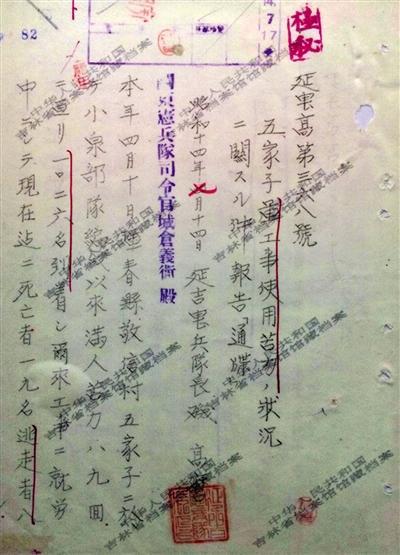 極秘
14.7.17
82
延憲高第三六八號
五家子軍工事使用苦力ノ狀況
ニ關スル件 報告「通牒」
昭和十四年七月十四日 延吉憲兵隊長
關東憲兵隊司令官城倉義衛 殿
本年四月十日琿春縣敬信村五家子ニ於
小泉部隊 以來滿人苦力八九回
ニ亘リ一〇二六名到着シ爾來工事ニ就勞
中ニシテ現在迄ニ死亡者一九名逃走者八
中华人民共和国
吉林省档案馆馆藏档案